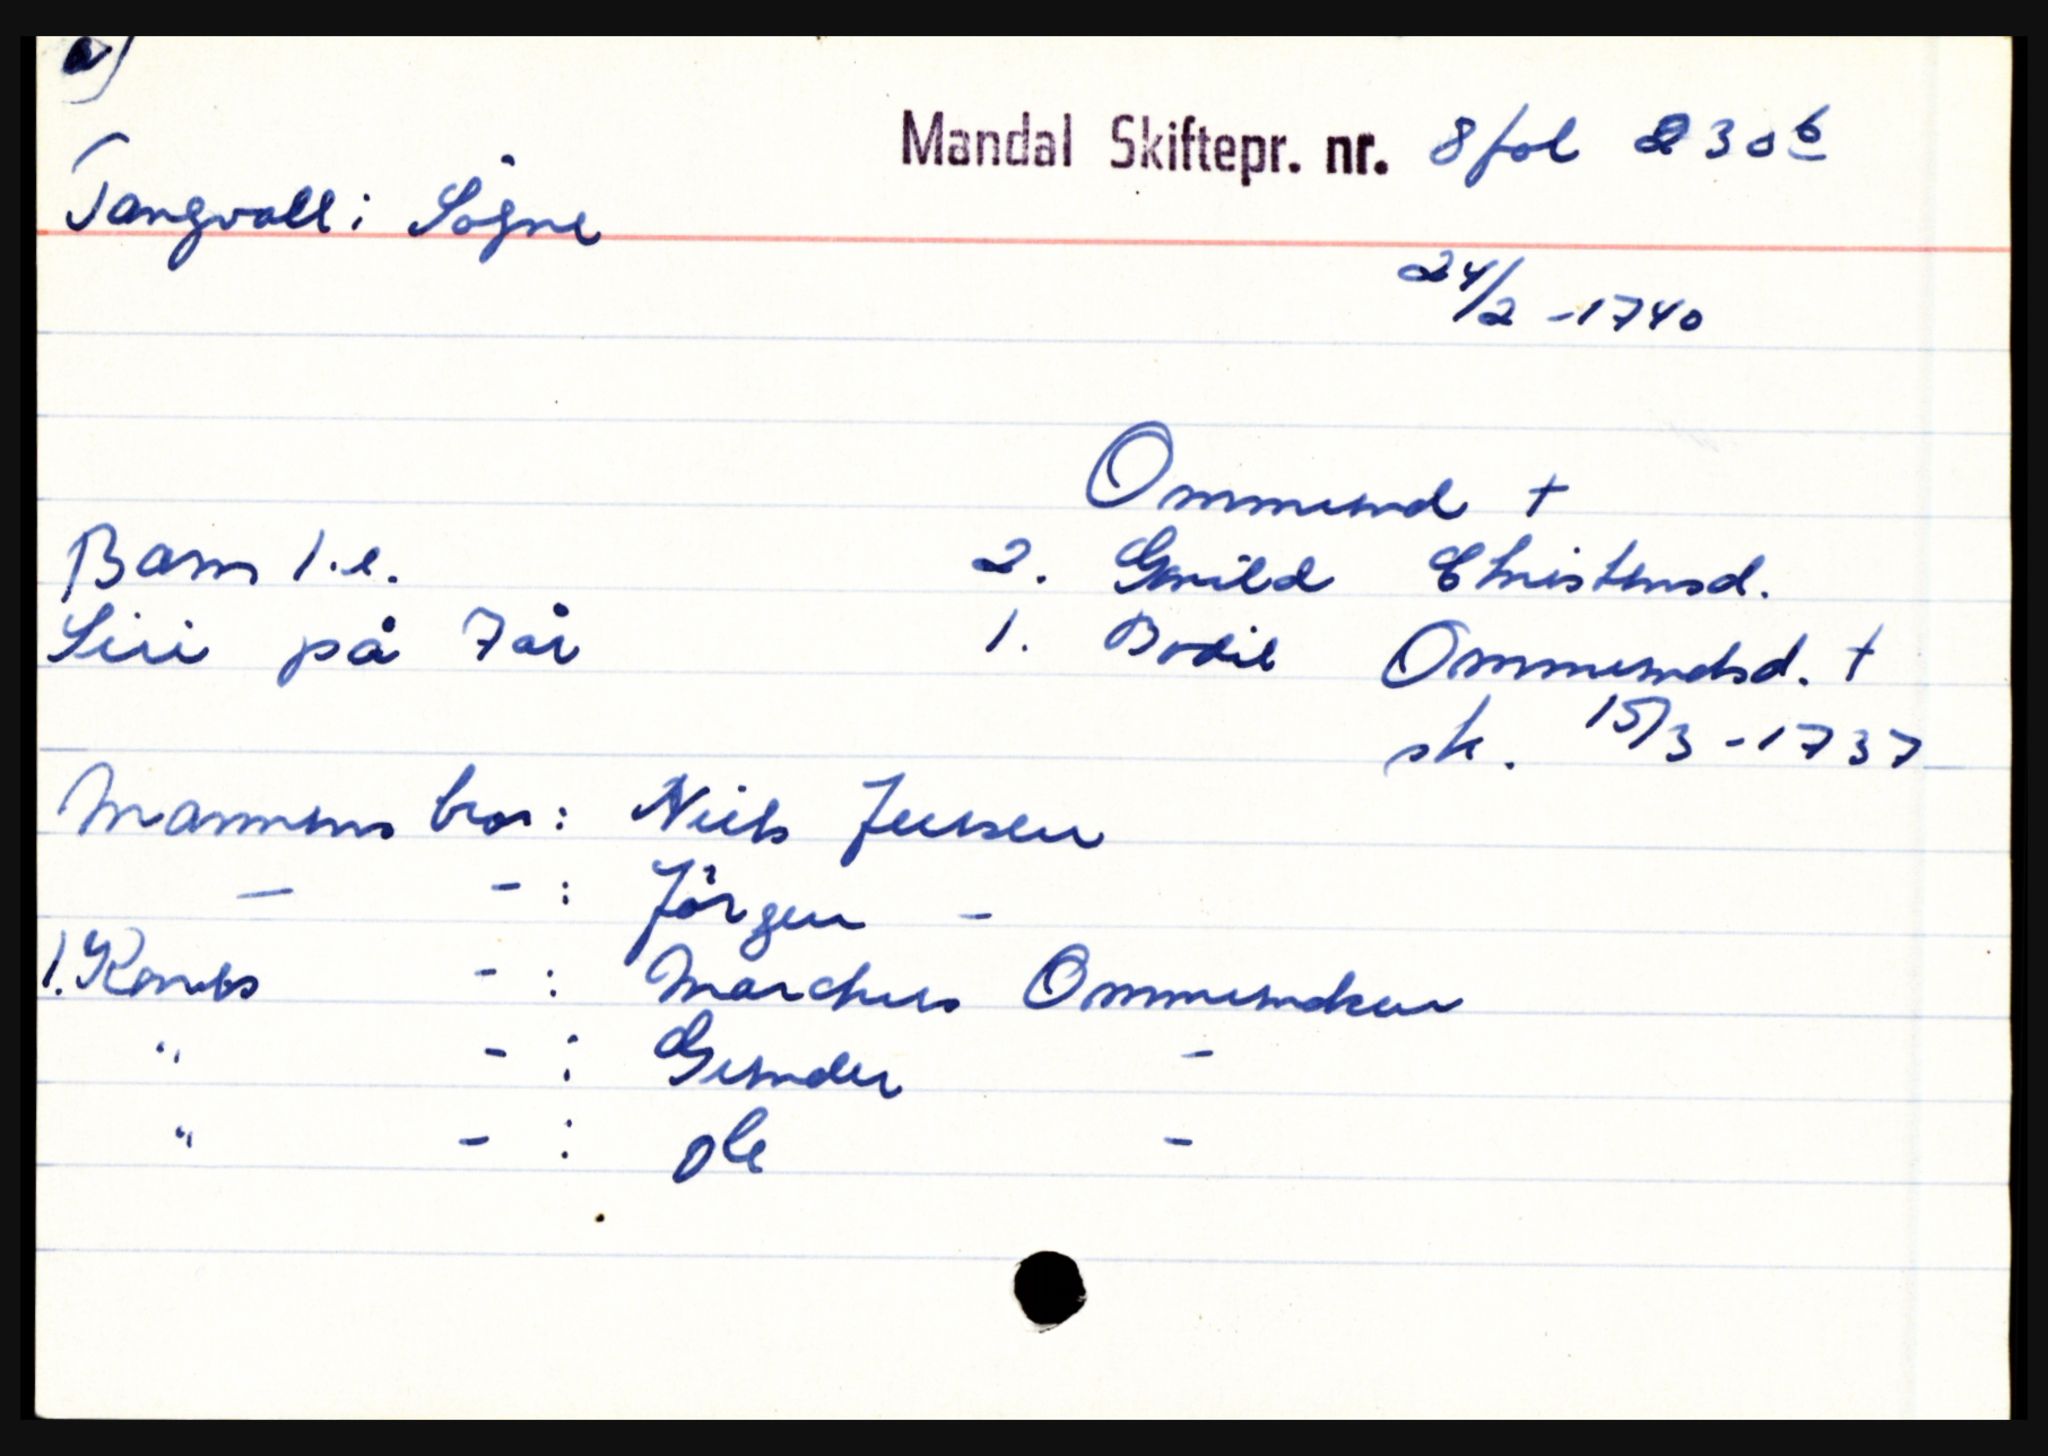 a)
Mandal Skiftepr. nr. 8 fol 230 b
Tangvall i Søgne
24/2 - 1740
Ommund †
Barn 1.e. 2. Gunild Christensd.
Siri på 7 år 1. Bodil Ommundsd. †
sk. 15/3 - 1737
Mannens bror: Niels Jensen
— - : Jörgen -
1. Konas - : Marchus Ommundsen
" - : Gunder -
" - : Ole -